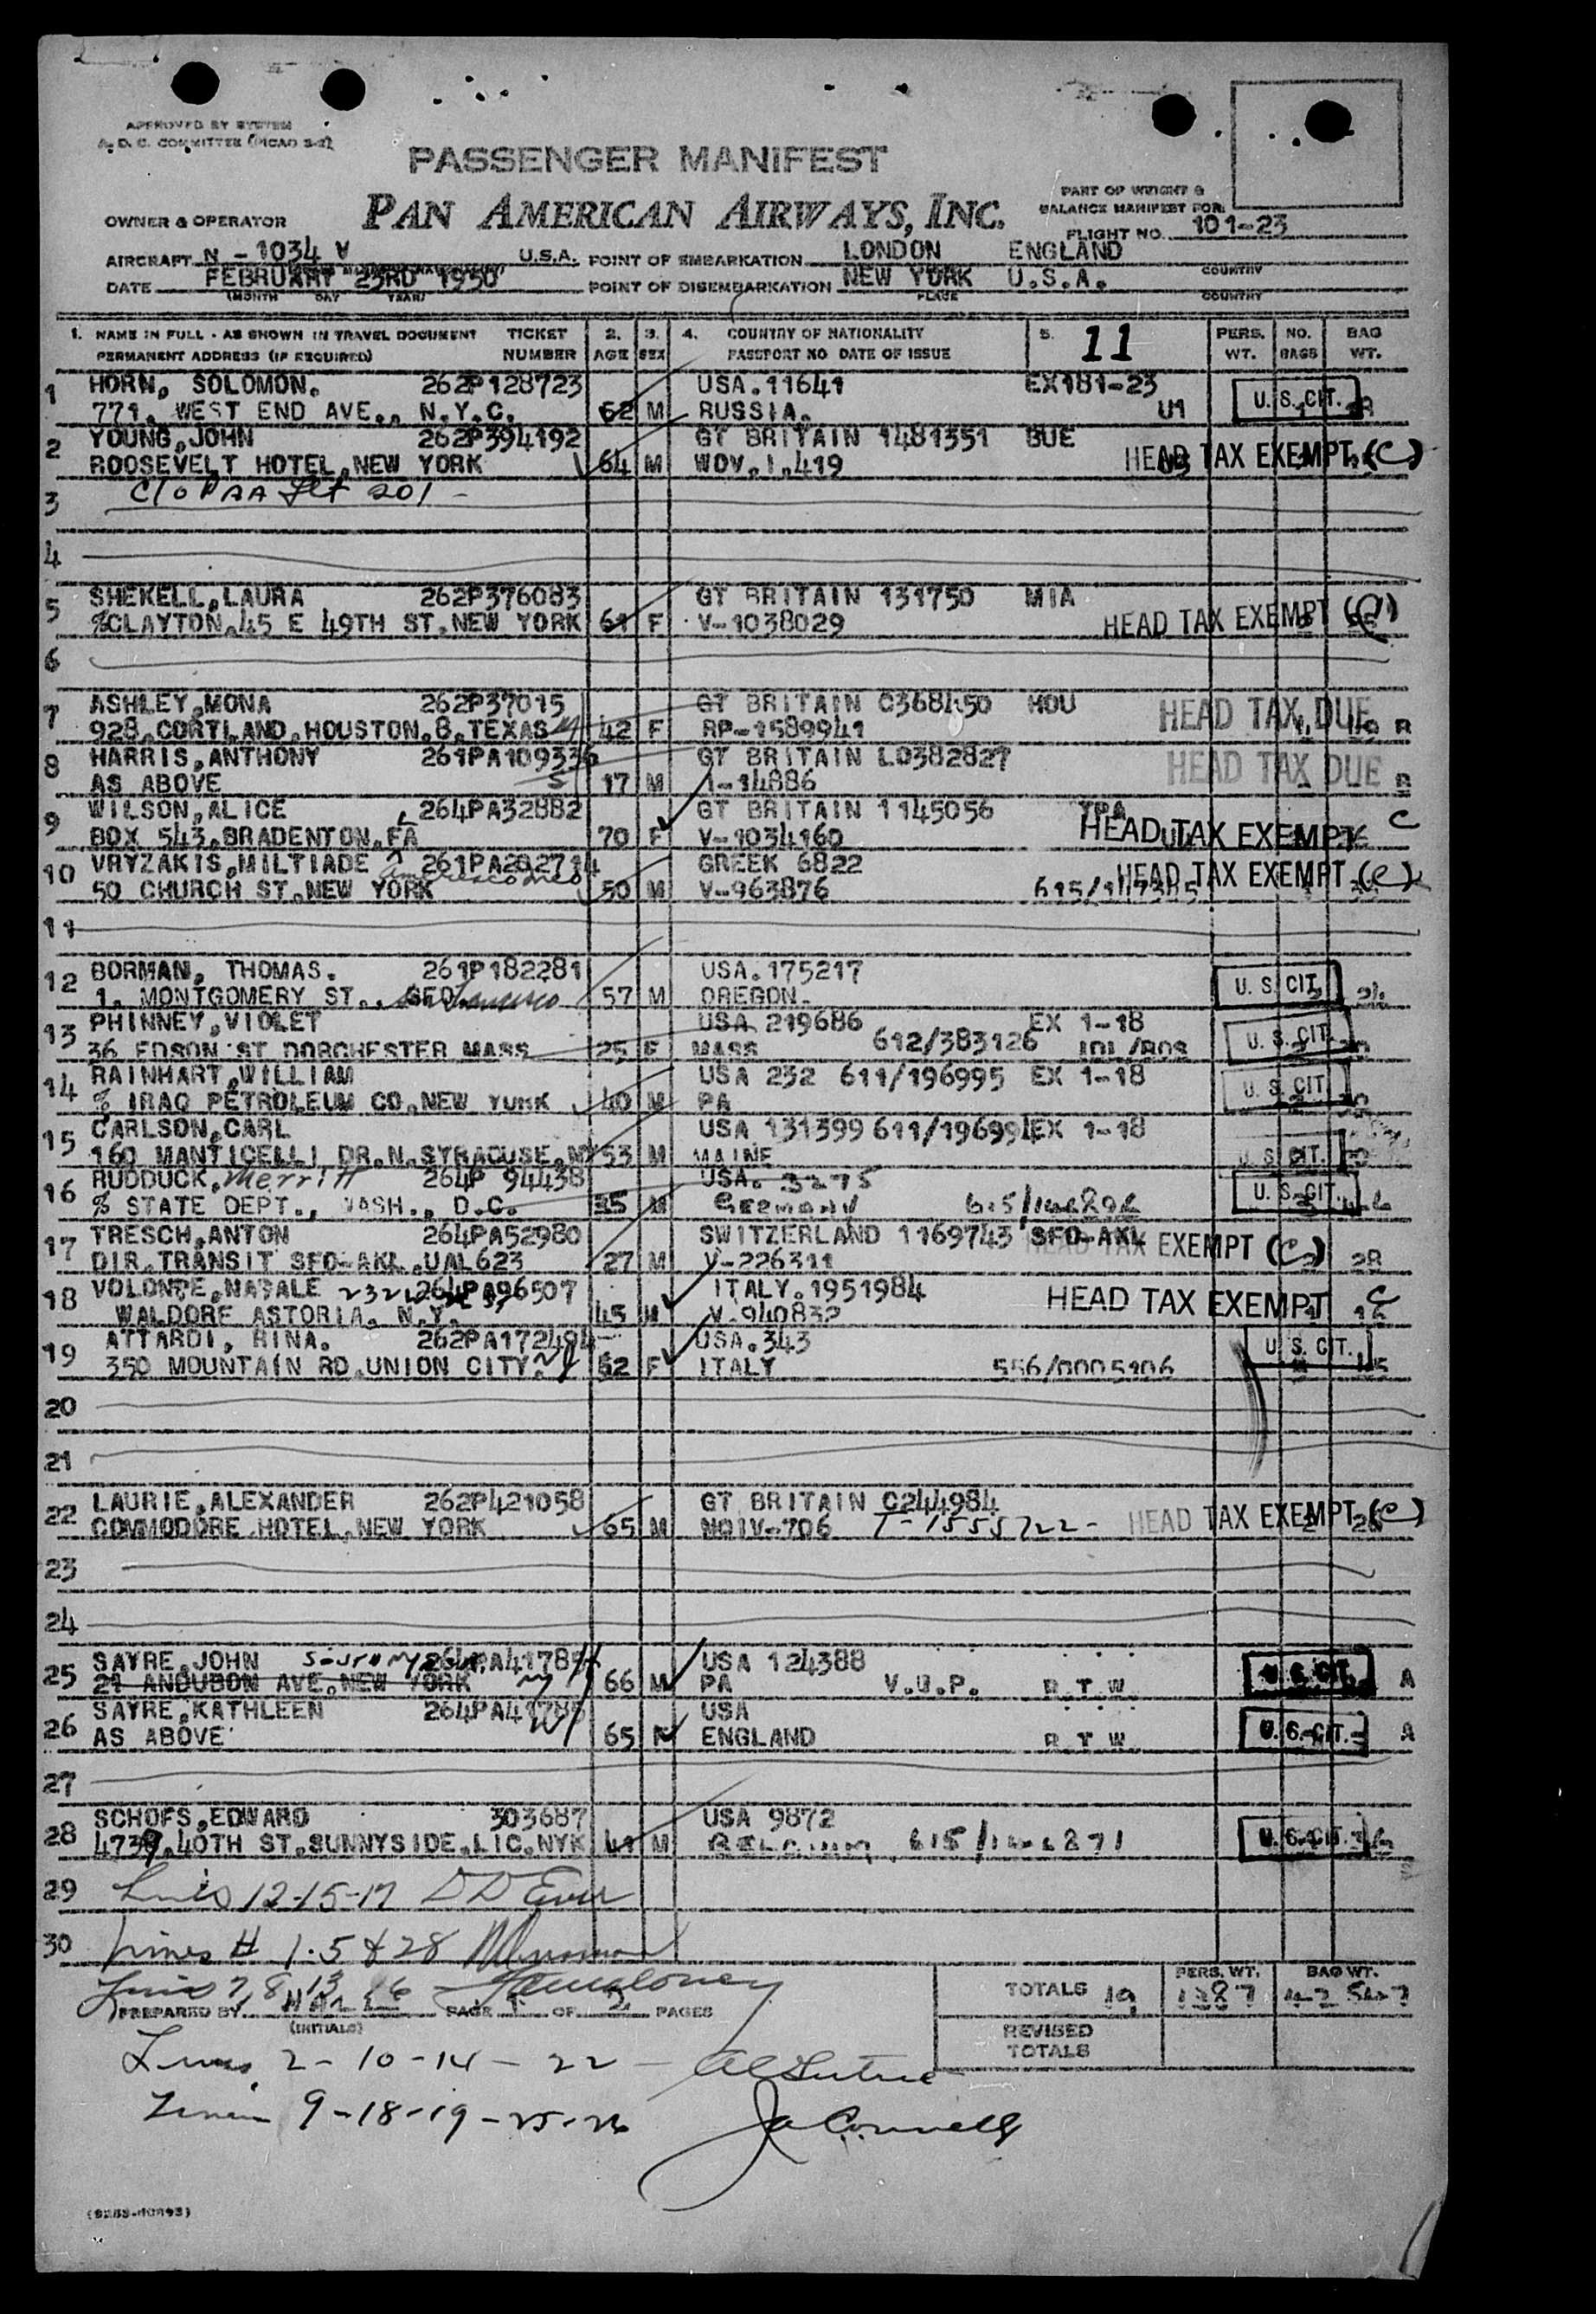 APPROVED BY SYSTEM
A. D. C. COMMITTEE (PICAO 2-2)
PASSENGER MANIFEST
PAN AMERICAN AIRWAYS, INC.
PART OF WEIGHT &
BALANCE MANIFEST FOR
OWNER & OPERATOR
FLIGHT NO. 101-23
AIRCRAFT N - 1034 V U.S.A. POINT OF EMBARKATION LONDON ENGLAND
DATE FEBRUARY 23RD 1950 POINT OF DISEMBARKATION NEW YORK U.S.A.
COUNTRY
(MONTH DAY YEAR) PLACE COUNTRY
1. NAME IN FULL - AS SHOWN IN TRAVEL DOCUMENT TICKET 2. 3. 4. COUNTRY OF NATIONALITY 5. 11 PERS. NO. BAG
PERMANENT ADDRESS (IF REQUIRED) NUMBER AGE SEX PASSPORT NO DATE OF ISSUE WT. BAGS WT.
1 HORN, SOLOMON. 262P128723 USA.11641 EX181-23
771, WEST END AVE., N.Y.C. 62 M RUSSIA. UM U. S. CIT.
2 YOUNG,JOHN 262P394192 GT BRITAIN 1481351 BUE
ROOSEVELT HOTEL,NEW YORK 64 M WOV.1.419 HEAD TAX EXEMPT (C)
3 C/o PAA Flt 201 -
4
5 SHEKELL,LAURA 262P376083 GT BRITAIN 131750 MIA
%CLAYTON,45 E 49TH ST,NEW YORK 61 F V-1038029 HEAD TAX EXEMPT (C)
6
7 ASHLEY,MONA 262P37015 GT BRITAIN C368450 HOU
928,CORTLAND,HOUSTON,8,TEXAS 42 F RP-1589941 HEAD TAX DUE R
8 HARRIS,ANTHONY 261PA109336 GT BRITAIN L0382827
AS ABOVE 17 M I-14886 HEAD TAX DUE R
9 WILSON,ALICE 264PA32882 GT BRITAIN 1145056 TPA
BOX 543,BRADENTON,FA 70 F V-1034160 HEAD TAX EXEMPT C
10 VRYZAKIS,MILTIADE 261PA202714 GREEK 6822
50 CHURCH ST,NEW YORK 50 M V-963876 HEAD TAX EXEMPT (C)
11
12 BORMAN, THOMAS. 261P182281 USA.175217
1, MONTGOMERY ST., SFO San Francisco 57 M OREGON. U. S. CIT.
13 PHINNEY,VIOLET USA 219686 EX 1-18
36 EDSON ST DORCHESTER MASS 25 F MASS 612/383126 IDL/BOS U. S. CIT.
14 RAINHART,WILLIAM USA 232 611/196995 EX 1-18
% IRAQ PETROLEUM CO,NEW YORK 40 M PA U. S. CIT.
15 CARLSON,CARL USA 131399 611/196994 EX 1-18
160 MANTICELLI DR.N.SYRACUSE,NY 53 M MAINE U. S. CIT.
16 RUDDUCK, Merritt 264P 94438 USA. 3275
% STATE DEPT., WASH., D.C. 35 M GERMANY U. S. CIT.
17 TRESCH,ANTON 264PA52980 SWITZERLAND 1169743 SFO-AKL
DIR.TRANSIT SFO-AKL,UAL623 27 M V-226311 HEAD TAX EXEMPT (C) 28
18 VOLONTE,NATALE 264PA96507 ITALY.1951984
WALDORE ASTORIA, N.Y. 45 M V.940832 HEAD TAX EXEMPT C
19 ATTARDI, RINA. 262PA172494 USA.343
350 MOUNTAIN RD,UNION CITY. NJ 52 F ITALY 556/0005106 U. S. CIT.
20
21
22 LAURIE,ALEXANDER 262P421058 GT BRITAIN C244984
COMMODORE HOTEL,NEW YORK 65 M NOIV-706 T-1555722- HEAD TAX EXEMPT (C)
23
24
25 SAYRE,JOHN 264PA41784 USA 124388
21 ANDUBON AVE,NEW YORK 66 M PA V.U.P. R T W U. S. CIT. A
26 SAYRE,KATHLEEN 264PA41785 USA
AS ABOVE 65 ENGLAND R T W U. S. CIT. A
27
28 SCHOFS,EDWARD 303687 USA 9872
4739,40TH ST,SUNNYSIDE,LIC,NYK 41 M BELGIUM, 615/146871 U. S. CIT.
29 Lines 12-15-17
30 Lines # 1.5 & 28
Lines 7, 8, 13, 16
TOTALS 19 PERS. WT. 1387 BAG WT.
PREPARED BY PAGE 1 OF 2 PAGES
(INITIALS)
REVISED
TOTALS
Lines 2 - 10 - 14 - 22 -
Lines 9 - 18 - 19 - 25 - 26